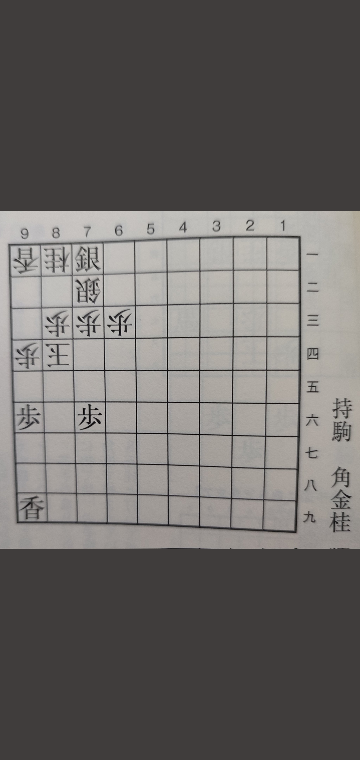 9 8 7 6 5 4 3 2 1
香 桂 銀 一
銀 二
歩 歩 歩 三
歩 王 四
五
歩 歩 六
七
八
香 九
持駒 角金桂